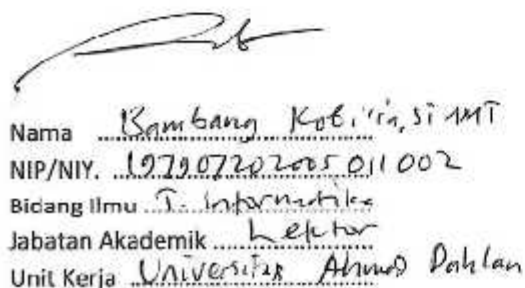 Nama Bambang
NIP/NIY. 197907202005011002
Bidang Ilmu T. Informatika
Jabatan Akademik Lektor
Unit Kerja Universitas Ahmad Dahlan